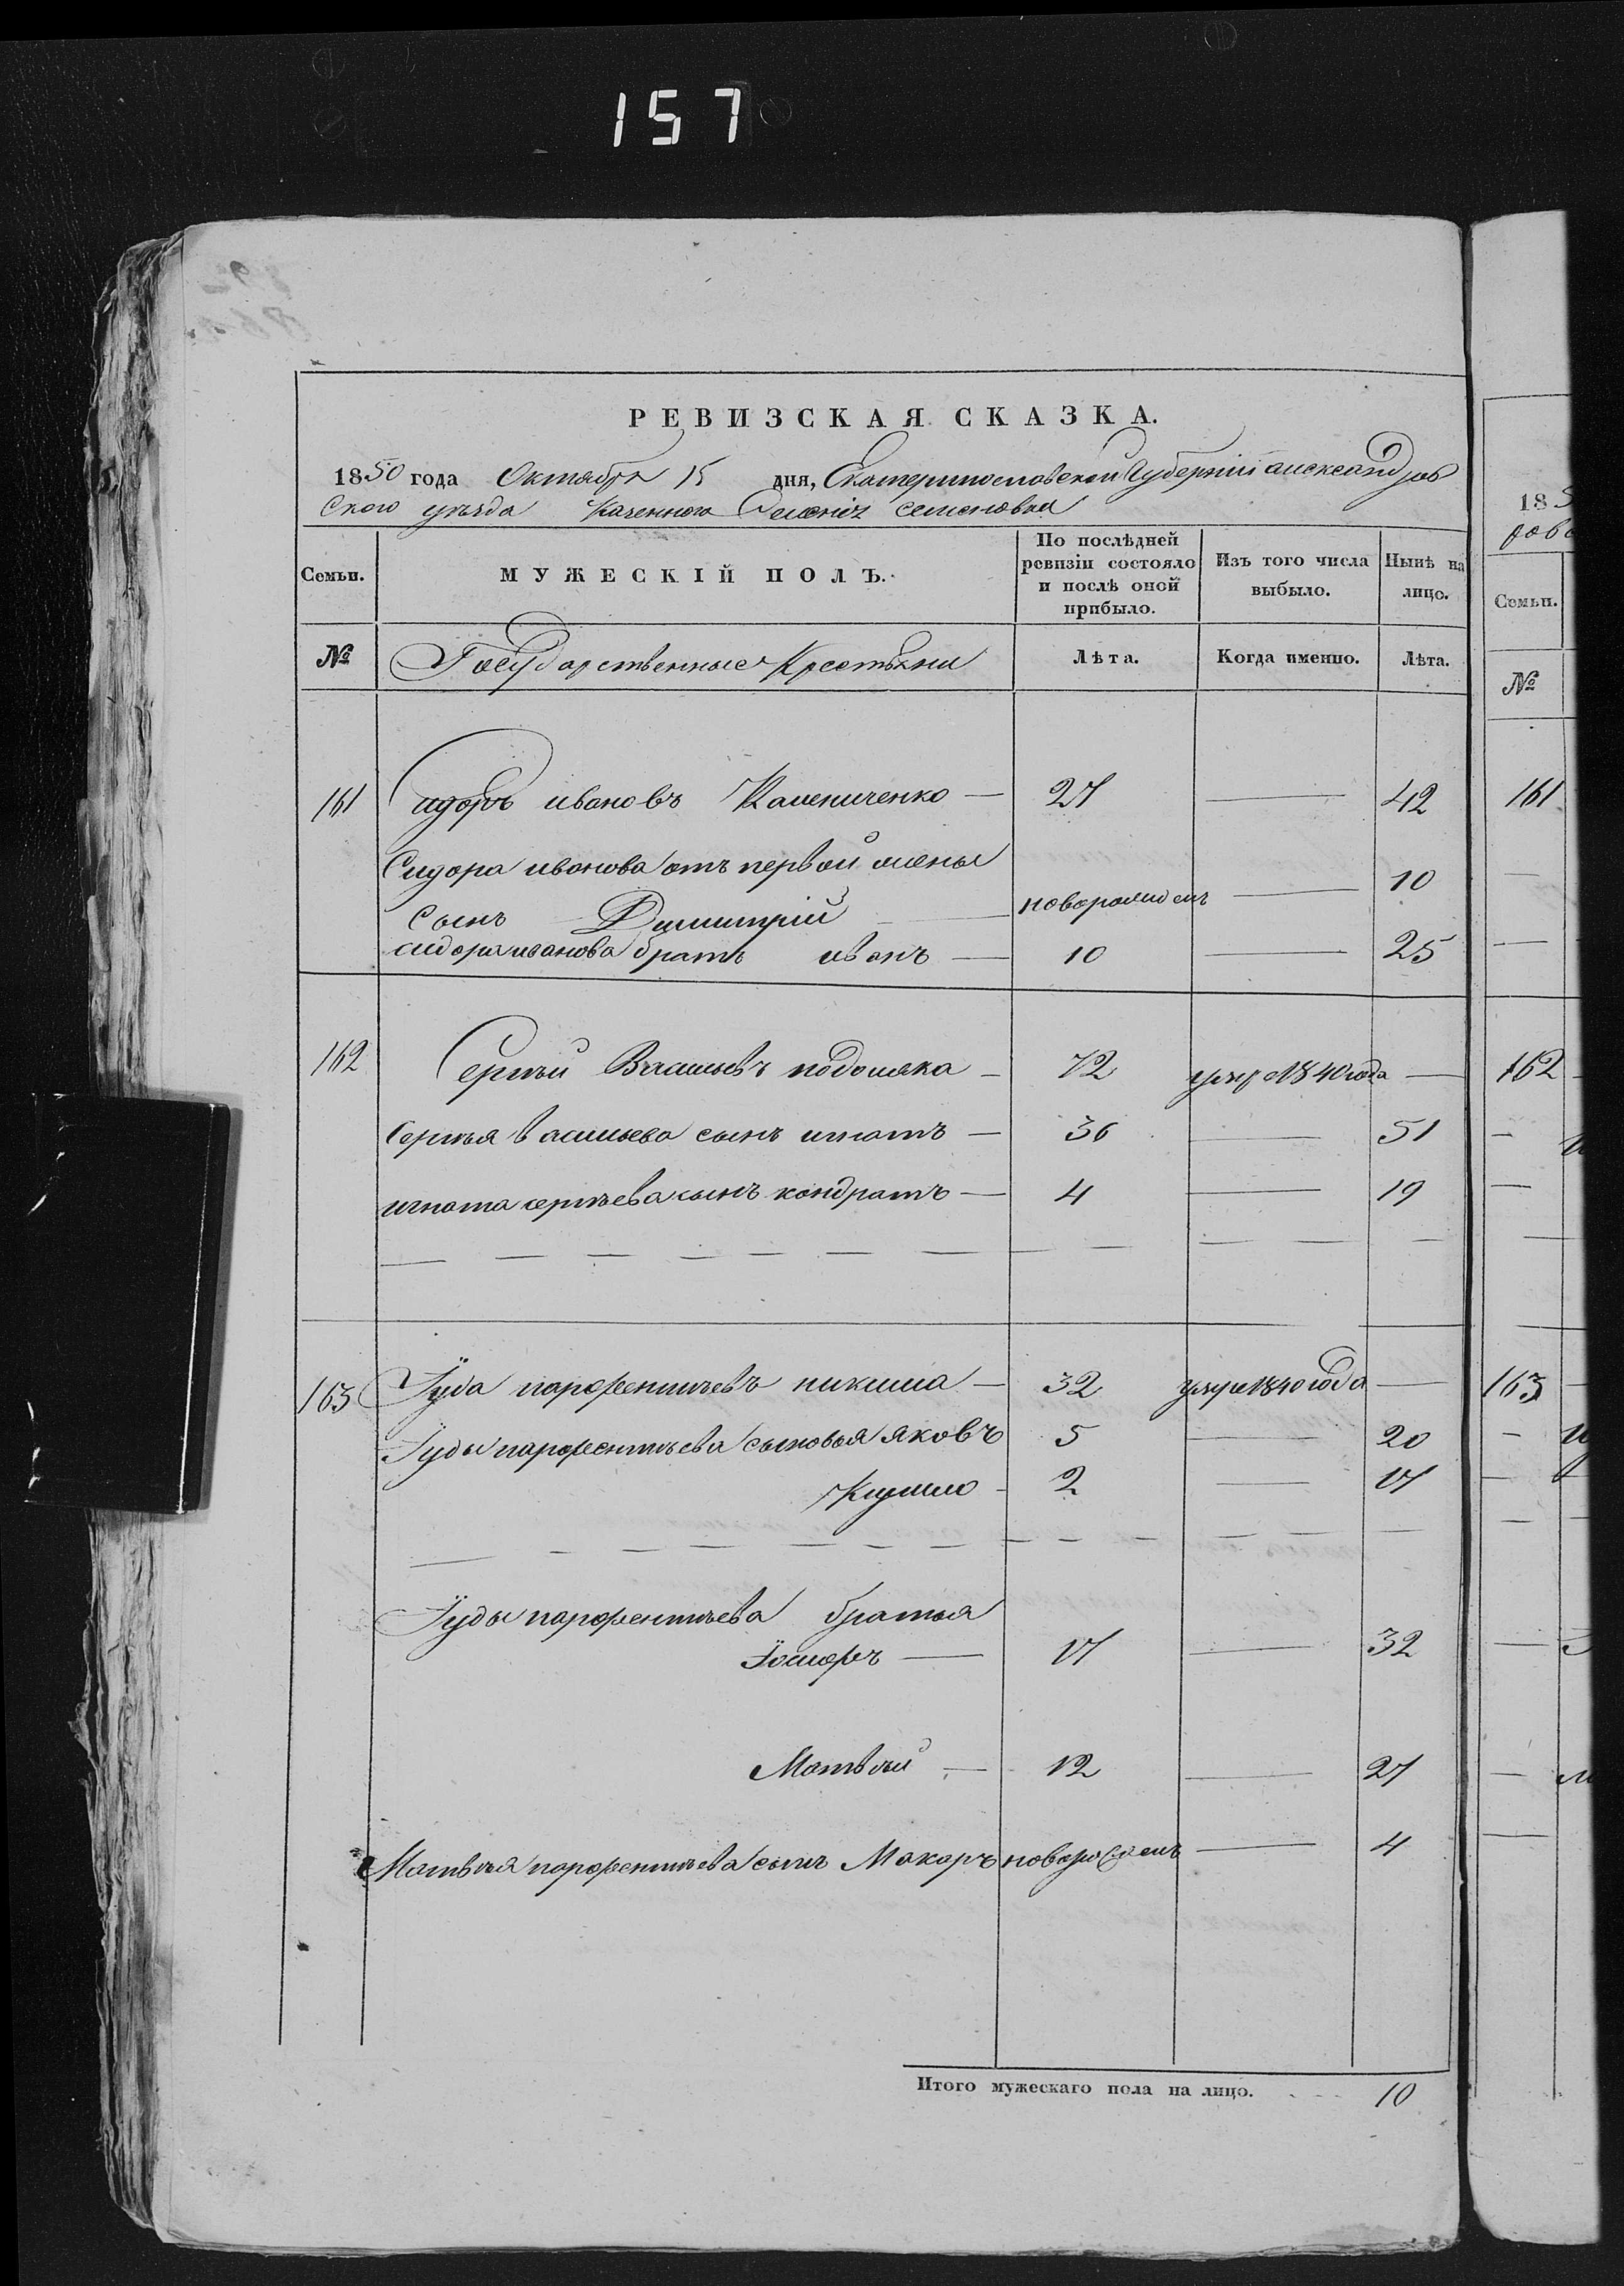 157
РЕВИЗСКАЯ СКАЗКА.
1850 года Октября 15 дня, Екатеринославской Губерніи александров
Ского уѣзда Казенного Селенія семеновка
Семьи.
МУЖЕСКІЙ ПОЛЪ.
По послѣдней ревизіи состояло и послѣ оной прибыло.
Изъ того числа выбыло.
Нынѣ на лицо.
№
Государственные Крестьяни
Лѣта.
Когда именно.
Лѣта.
161 Сидоръ ивановъ Каменченко — 27 — 42
Сидора иванова отъ первой жены
сынъ Димитрій — новорожденъ — 10
сидора иванова братъ иванъ — 10 — 25
162 Сергѣй Васильевъ подоляка — 72 умре 1840 года —
Сергѣя васильева сынъ игнатъ — 36 — 51
игната сергѣева сынъ кондратъ — 4 — 19
163 Іуда парфентьевъ 32 умре 1840 года —
Іуды парфентьева сыновья яковъ 5 — 20
Кузьма - 2 — 17
Іуды парфентьева братья
Іосифъ — 17 — 32
Матвѣй — 12 — 27
Матвѣя парфентьева сынъ Макаръ новорожденъ — 4
Итого мужескаго пола на лицо. 10
18 5
рово
Семьи.
№
161
162
163